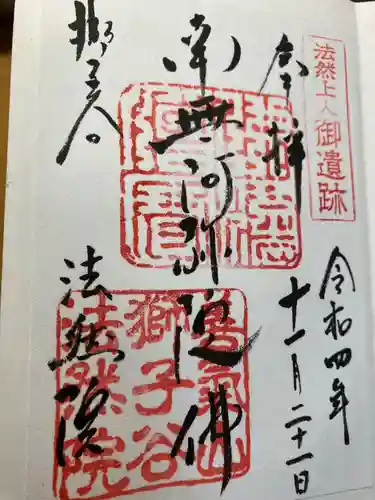 法然上人御遺跡
令和四年
十一月二十一日
奉拝
南無阿弥陀佛
法然院
善氣山
獅子谷
法然院